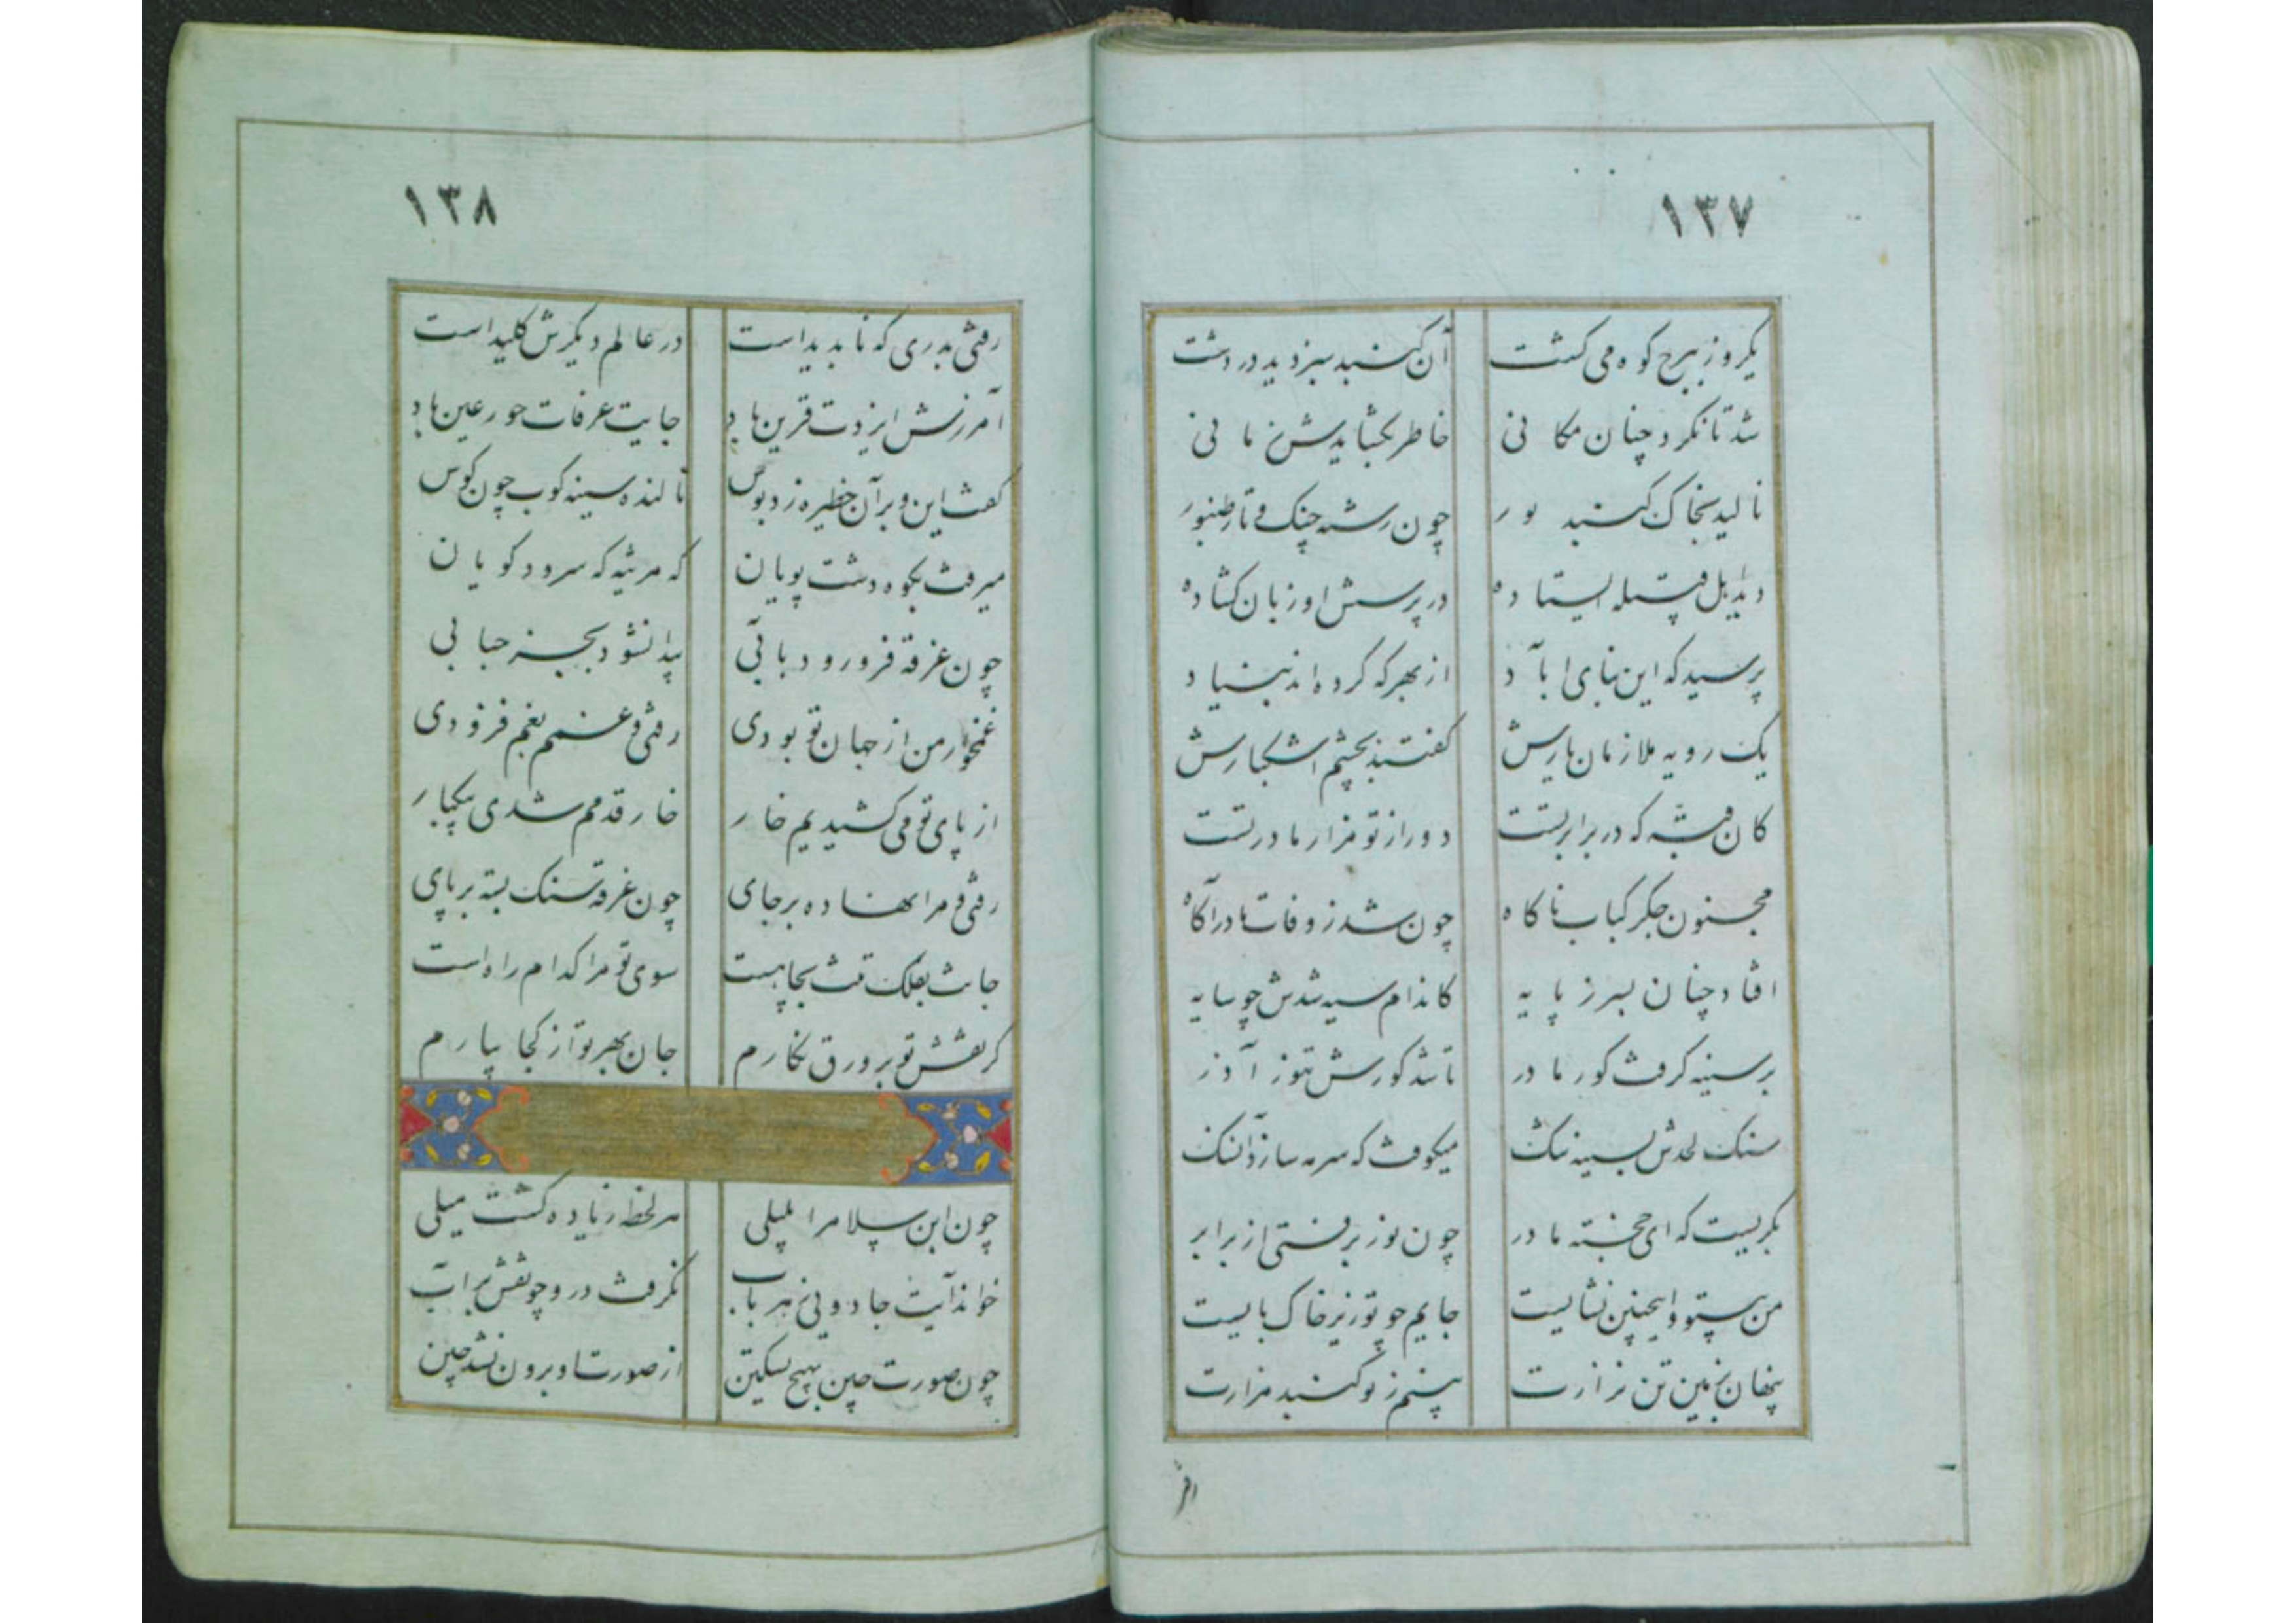 ۱۳۷
یکروز ببرح کوه می کشت آن کنبد سبز دید در دشت
شد تا نکرد چنان مکانی خاطر بکشایدش ز مانی
نالید بخاک کنبد چون رشته چنک و تار طنبور
دید اهل قبیله ایستاده در پرسش او زبان کشاده
پرسید که این بنای اباد از بهر که کرده اند بنیاد
یک رویه ملازمان یارش کفتند بچشم اشکبارش
کان قبه که در برابر تست دور از تو مزار مادر تست
مجنون جکر کباب ناکاه چون شد ز وفات مادر آکاه
افتاد چنان بسر ز پایه کاندام سیه شدش چو سایه
بر سینه کرفت کور مادر تا شد کورش تنور آذر
سنک لحدش بسینه تنک میکوفت که سرمه سازد آن سنک
بکریست که ای خجسته مادر چون نور برفتی از برابر
من بیتو و اینچنین نشایست جایم چو تو زیر خاک بایست
پنهان بزمین تن نزارت بینم ز تو کنبد مزارت
رفتی
۱۳۸
رفتی بدری که نابدید است در عالم دیکرش کلید است
آمرزش ایزدت قرین باد جایت عرفات حور عین باد
کفت این و بر آن حظیره زد بوس نالنده سینه کوب چون کوس
میرفت بکوه و دشت پویان که مرثیه که سرود کویان
چون غرقه فرو رود بابی پیدا نشود بجز حبابی
غمخوار من از جهان تو بودی رفتی و غمم بغم فزودی
از پای تو می کشیدیم خار خار قدمم شدی بیکبار
رفتی و مرا نهاده بر جای چون غرقه سنک بسته بر پای
جانت بفلک تنت بچاهست سوی تو مرا کدام راه است
کر نقش تو بر ورق نکارم جان بهر تو از کجا بیارم
چون ابن سلام را بلیلی هر لحظه زیاده کشت میلی
خواند آیت جادوئی ز هر باب نکرفت درو چو نقش بر آب
چون صورت چین بهیچ تسکین از صورت او برون نشد چین